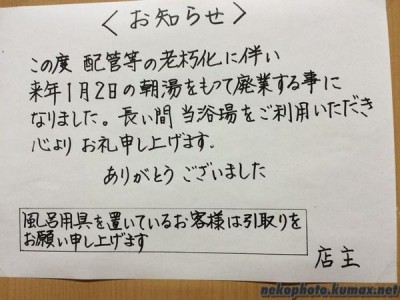 〈お知らせ〉
この度 配管等の老朽化に伴い
来年1月2日の朝湯をもって廃業する事に
なりました。長い間 当浴場をご利用いただき
心より お礼申し上げます.
ありがとう ございました
風呂用具を置いているお客様は引取りを
お願い申し上げます
店主
nekophoto.kumax.net